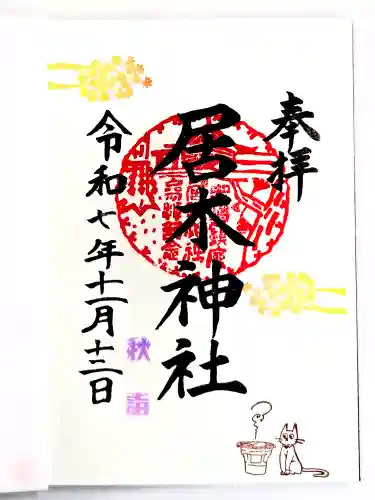 奉拝
居木神社
令和七年十一月十二日
秋